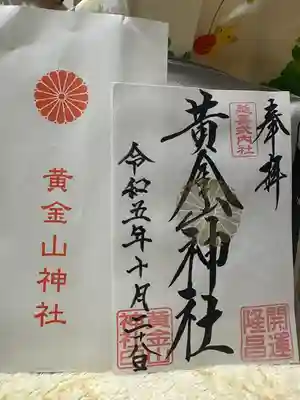 黄金山神社
奉拝
延喜式内社
黄金山神社
開運隆昌
黄金山神社印
令和五年十月二十八日